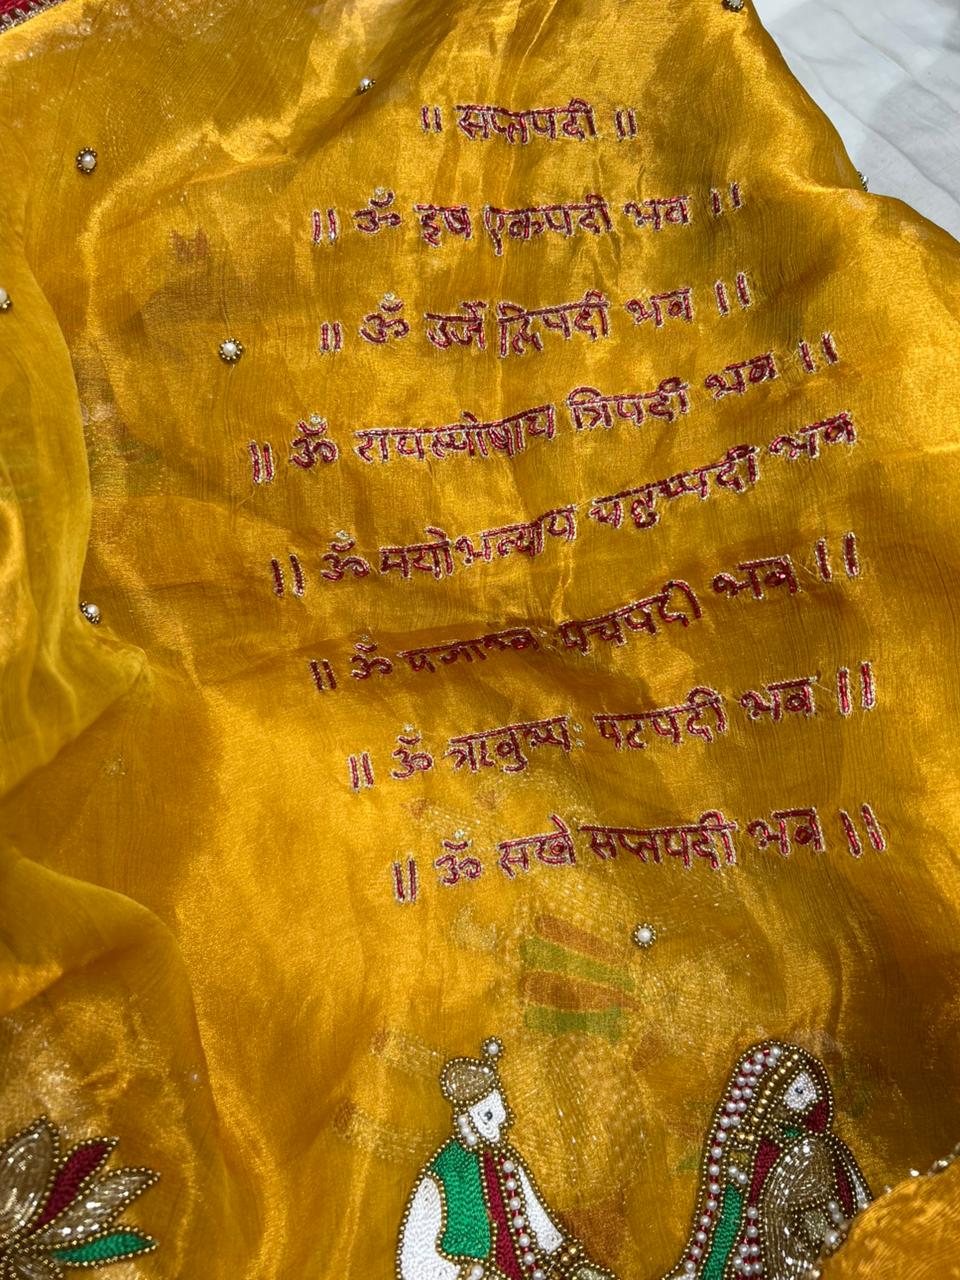 ॥ सप्तपदी ॥
॥ ॐ इष एकपदी भव ॥
॥ ॐ उर्जे द्विपदी भव ॥
॥ ॐ रायस्पोषाय त्रिपदी भव ॥
॥ ॐ मयोभव्याय चतुष्पदी भव
॥ ॐ प्रजाभ्यः पंचपदी भव ॥
॥ ॐ षटपदी भव ॥
॥ ॐ सखे सप्तपदी भव ॥